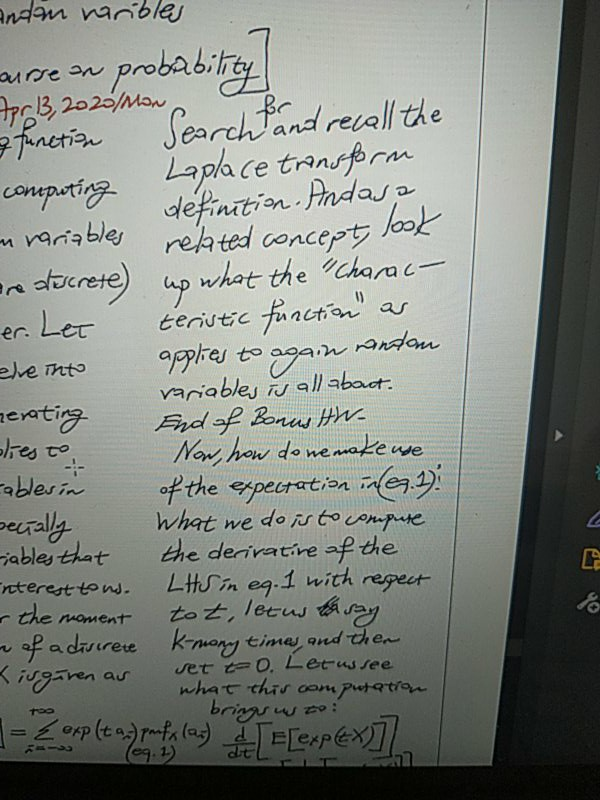 random varibles
course on probability]
Apr 13, 2020/Mon
function
computing
variables
are discrete)
er. Let
elve into
nerating
plies to
iables in
pecially
riables that
interest to us.
the moment
of a discrete
X is given as
+∞
] = Σ exp(t ai) pmfx(ai)
i=-∞
(eq.1)
Search for and recall the
Laplace transform
definition. And as a
related concept, look
up what the "charac-
teristic function" as
applies to again random
variables is all about.
End of Bonus HW-
Now, how do we make use
of the expectation in (eq.1)?
What we do is to compute
the derivative of the
LHS in eq.1 with respect
to t, let us say
k-many times, and then
set t=0. Let us see
what this computation
brings us to:
d/dt [E[exp(tX)]]